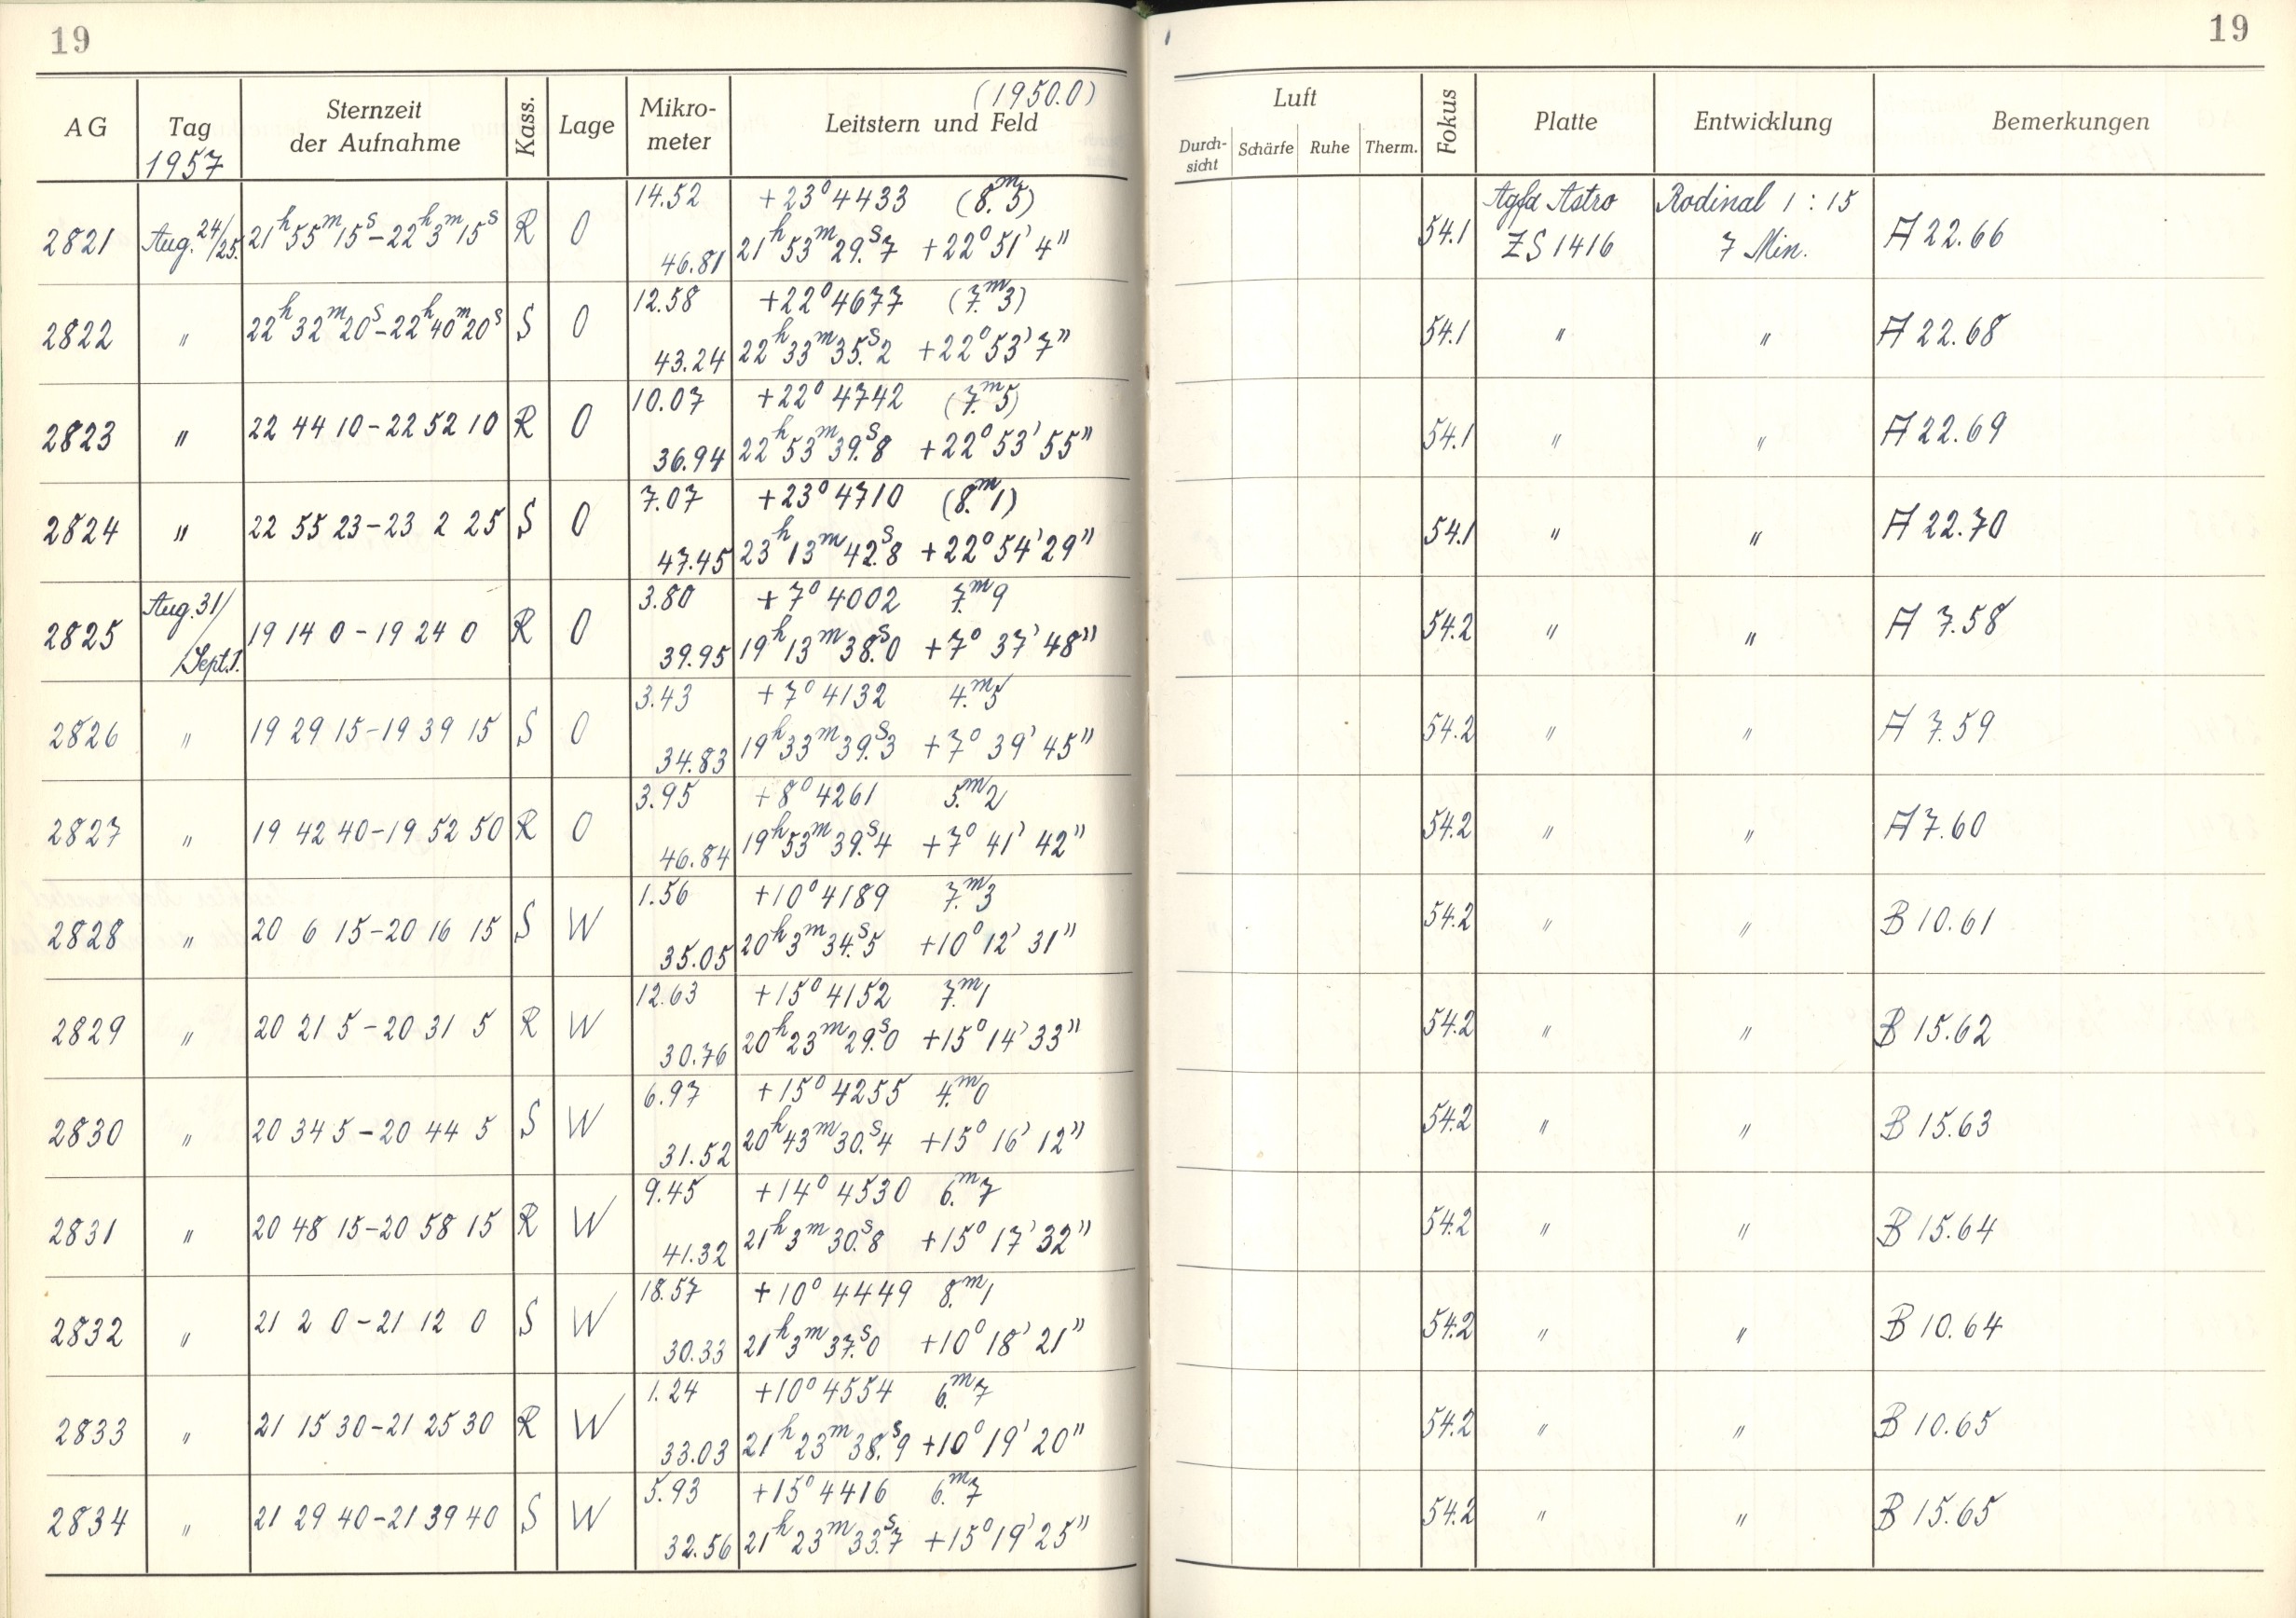 19
19
AG Tag 1957 Sternzeit der Aufnahme Kass. Lage Mikro-meter Leitstern und Feld (1950.0) Luft Durch-sicht Schärfe Ruhe Therm. Fokus Platte Entwicklung Bemerkungen
14.52 +23° 4433 (8.ᵐ5) Agfa Astro Rodinal 1 : 15
2821 Aug. 24/25. 21ʰ55ᵐ15ˢ–22ʰ3ᵐ15ˢ R O 46.81 21ʰ53ᵐ29.ˢ7 +22°51'4" 54.1 ZS 1416 7 Min. A 22.66
12.58 +22° 4677 (7.ᵐ3)
2822 " 22ʰ32ᵐ20ˢ–22ʰ40ᵐ20ˢ S O 43.24 22ʰ33ᵐ35.ˢ2 +22°53'7" 54.1 " " A 22.68
10.07 +22° 4742 (7.ᵐ5)
2823 " 22 44 10–22 52 10 R O 36.94 22ʰ53ᵐ39.ˢ8 +22°53'55" 54.1 " " A 22.69
7.07 +23° 4710 (8.ᵐ1)
2824 " 22 55 23–23 2 25 S O 47.45 23ʰ13ᵐ42.ˢ8 +22°54'29" 54.1 " " A 22.70
3.80 +7° 4002 7.ᵐ9
2825 Aug. 31/Sept. 1. 19 14 0–19 24 0 R O 39.95 19ʰ13ᵐ38.ˢ0 +7°37'48" 54.2 " " A 7.58
3.43 +7° 4132 4.ᵐ5
2826 " 19 29 15–19 39 15 S O 34.83 19ʰ33ᵐ39.ˢ3 +7°39'45" 54.2 " " A 7.59
3.95 +8° 4261 5.ᵐ2
2827 " 19 42 40–19 52 50 R O 46.84 19ʰ53ᵐ39.ˢ4 +7°41'42" 54.2 " " A 7.60
1.56 +10° 4189 7.ᵐ3
2828 " 20 6 15–20 16 15 S W 35.05 20ʰ3ᵐ34.ˢ5 +10°12'31" 54.2 " " B 10.61
12.63 +15° 4152 7.ᵐ1
2829 " 20 21 5–20 31 5 R W 30.76 20ʰ23ᵐ29.ˢ0 +15°14'33" 54.2 " " B 15.62
6.97 +15° 4255 4.ᵐ0
2830 " 20 34 5–20 44 5 S W 31.52 20ʰ43ᵐ30.ˢ4 +15°16'12" 54.2 " " B 15.63
9.45 +14° 4530 6.ᵐ7
2831 " 20 48 15–20 58 15 R W 41.32 21ʰ3ᵐ30.ˢ8 +15°17'32" 54.2 " " B 15.64
18.57 +10° 4449 8.ᵐ1
2832 " 21 2 0–21 12 0 S W 30.33 21ʰ3ᵐ37.ˢ0 +10°18'21" 54.2 " " B 10.64
1.24 +10° 4554 6.ᵐ7
2833 " 21 15 30–21 25 30 R W 33.03 21ʰ23ᵐ38.ˢ9 +10°19'20" 54.2 " " B 10.65
5.93 +15° 4416 6.ᵐ7
2834 " 21 29 40–21 39 40 S W 32.56 21ʰ23ᵐ33.ˢ7 +15°19'25" 54.2 " " B 15.65